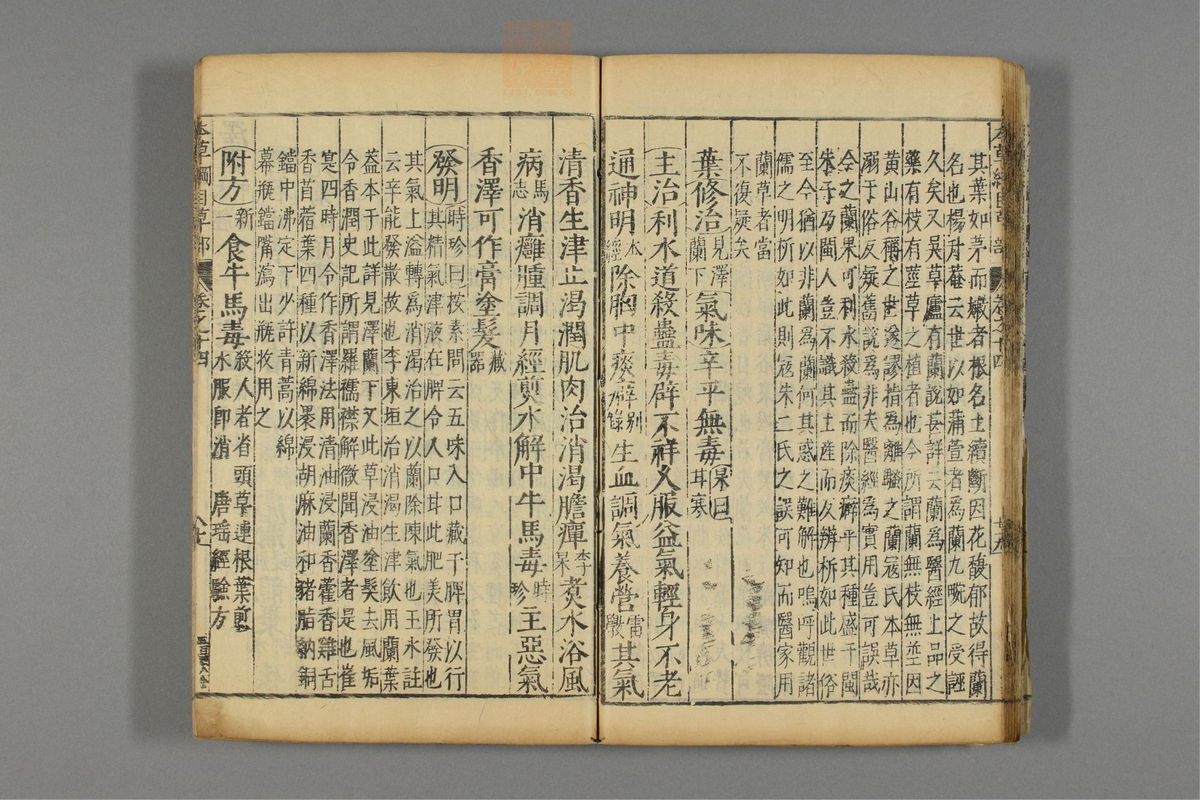 其葉如茅而嫩者根名土續斷因花馥郁故得蘭
名也楊升菴云世以如蒲萱者爲蘭九畹之受誣
久矣又吳草廬有蘭說甚詳云蘭爲醫經上品之
藥有枝有莖草之植者也今所謂蘭無枝無莖因
黃山谷稱之世遂謬指爲離騷之蘭寇氏本草亦
溺于俗反疑舊說爲非夫醫經爲實用豈可誤哉
今之蘭果可利水殺蠱而除痰癖乎其種盛于閩
朱子乃閩人豈不識其土產而反辨析如此世俗
至今猶以非蘭爲蘭何其惑之難解也嗚呼觀諸
儒之明析如此則寇朱二氏之誤可知而醫家用
蘭草者當
不復疑矣
葉修治見澤蘭下氣味辛平無毒杲曰甘寒
主治利水道殺蠱毒辟不祥久服益氣輕身不老
通神明本經除胸中痰癖別錄生血調氣養營雷斅其氣
清香生津止渴潤肌肉治消渴膽癉李杲煑水浴風
病馬志消癰腫調月經煎水解中牛馬毒時珍主惡氣
香澤可作膏塗髮藏器
發明時珍曰按素問云五味入口藏于脾胃以行
其精氣津液在脾令人口甘此肥美所發也
其氣上溢轉爲消渴治之以蘭除陳氣也王氷註
云辛能發散故也李東垣治消渴生津飲用蘭葉
葢本于此詳見澤蘭下又此草浸油塗髮去風垢
令香潤史記所謂羅襦襟解微聞香澤者是也崔
寔四時月令作香澤法用清油浸蘭香藿香雞舌
香苜蓿葉四種以新綿裹浸胡麻油和猪脂納銅
鐺中沸定下少許青蒿以綿
幕瓶鐺嘴瀉出瓶收用之
附方新一食牛馬毒殺人者省頭草連根葉煎
水服即消　唐瑶經驗方
本草綱目草部　卷之十四